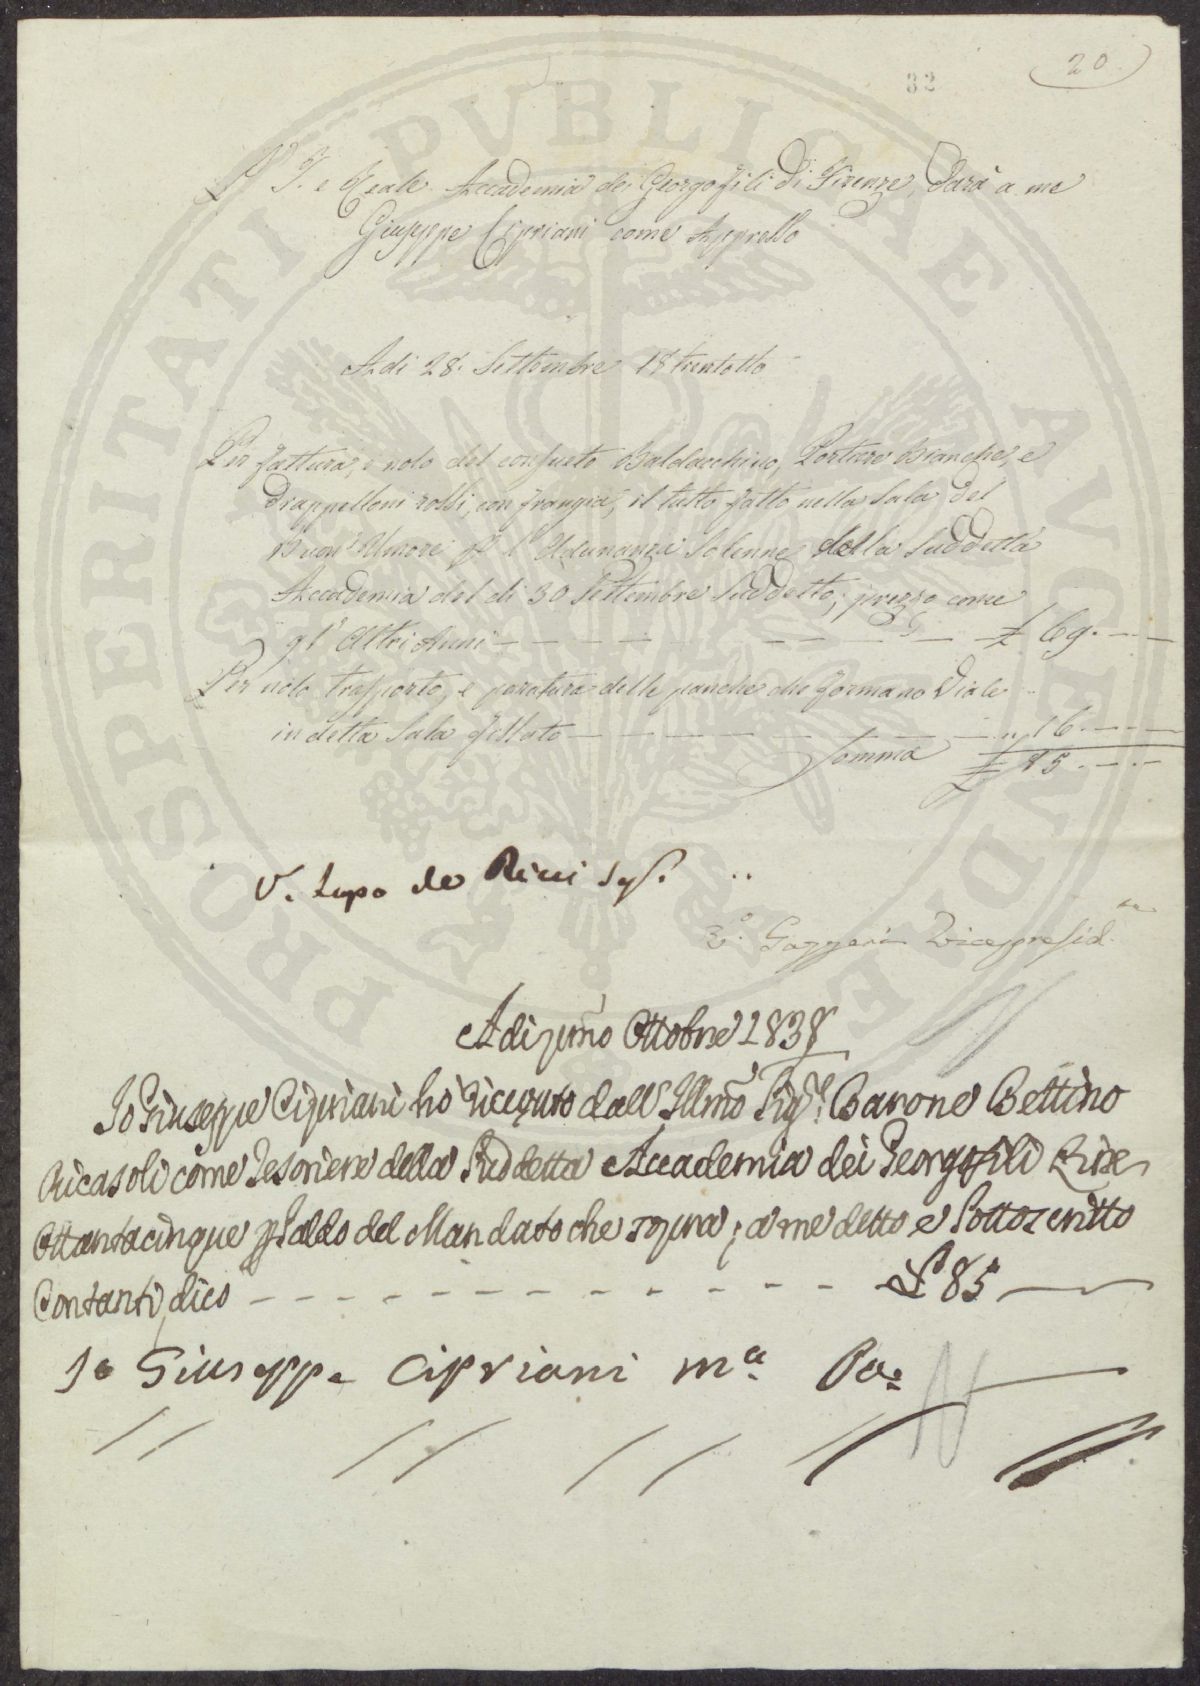 20
32
L' I. e Reale Accademia dei Georgofili di Firenze, Darà a me
Giuseppe Cipriani come Appresso
A di 28. Settembre 18 trentotto
Per fattura, e nolo del consueto Baldacchino, Portiere Bianche, e
Drappelloni rossi, con frangia, il tutto fatto nella Sala del
Buon' Umore p l' Adunanza Solenne della Suddetta
Accademia del di 30 Settembre Suddetto; prezzo come
gl' Altri Anni — — — — £ 69. — —
Per nolo trasporto, e paratura delle panche che formano Viale
in detta Sala — — — — " 16. — —
Somma £ 85. — —
V. Lupo de Ricci
V.º Gazzeri Vicepresid.te
A di primo Ottobre 1838
Io Giuseppe Cipriani hò Ricevuto dall' Illmo Sig.r Barone Bettino
Ricasoli come Tesoriere della Suddetta Accademia dei Georgofili Lire
Ottantacinque p Saldo del Mandato che sopra; a me detto e Sottoscritto
Contanti, dico — — — — £ 85 —
Io Giuseppe Cipriani m.a Pa:
PROSPERITATI PVBLICAE AVGENDAE